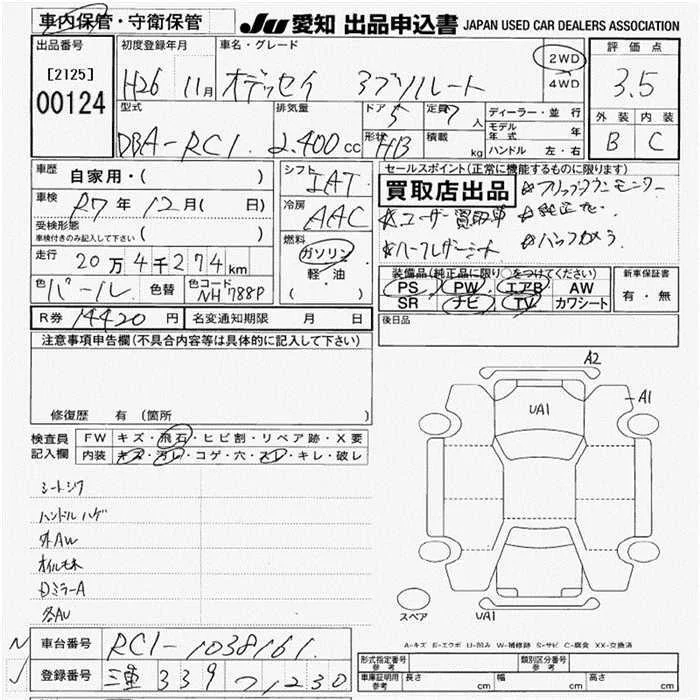 車内保管・守衛保管
JU 愛知 出品申込書 JAPAN USED CAR DEALERS ASSOCIATION
出品番号
[2125]
00124
初度登録年月
H26 11月
車名・グレード
オデッセイ アブソルート
2WD
4WD
評価点
3.5
外装 内装
B C
型式
DBA-RC1
排気量
2.400 cc
ドア
5
定員
7 人
形状
HB
積載
kg
ディーラー・並行
モデル年式 年
ハンドル 左・右
車歴
自家用・( )
車検
R7年 12月( 日)
受検形態
車検付きのみ記入して下さい ( )
走行
20万4千274km
色
パール
色替
色コード
NH788P
シフト
IAT
冷房
AAC
燃料
ガソリン
軽・油
( )
セールスポイント(正常に機能するものに限ります)
買取店出品
☆フリップダウンモニター
☆ユーザー買取車
☆純正ナビ
☆ハーフレザーシート
☆バックカメラ
装備品(純正品に限り○をつけてください)
PS PW エアB AW
SR ナビ TV カワシート
新車保証書
有・無
R券 14420 円
名変通知期限 月 日
後日品
注意事項申告欄(不具合内容等は具体的に記入して下さい)
修復歴 有 (箇所
検査員記入欄
FW キズ・飛石・ヒビ割・リペア跡・X要
内装 キズ・汚レ・コゲ・穴・スレ・キレ・破レ
シートシワ
ハンドルハゲ
外AW
オイルモレ
Dミラー A
各AU
A2
A1
UA1
スペア
UA1
A-キズ E-エクボ U-凹み W-補修跡 S-サビ C-腐食 XX-交換済
車台番号
RC1-1038161
登録番号
三重 339 つ 1230
形式指定番号
参考
類別区分番号
参考
車庫証明用
参考
長さ cm
幅 cm
高さ cm